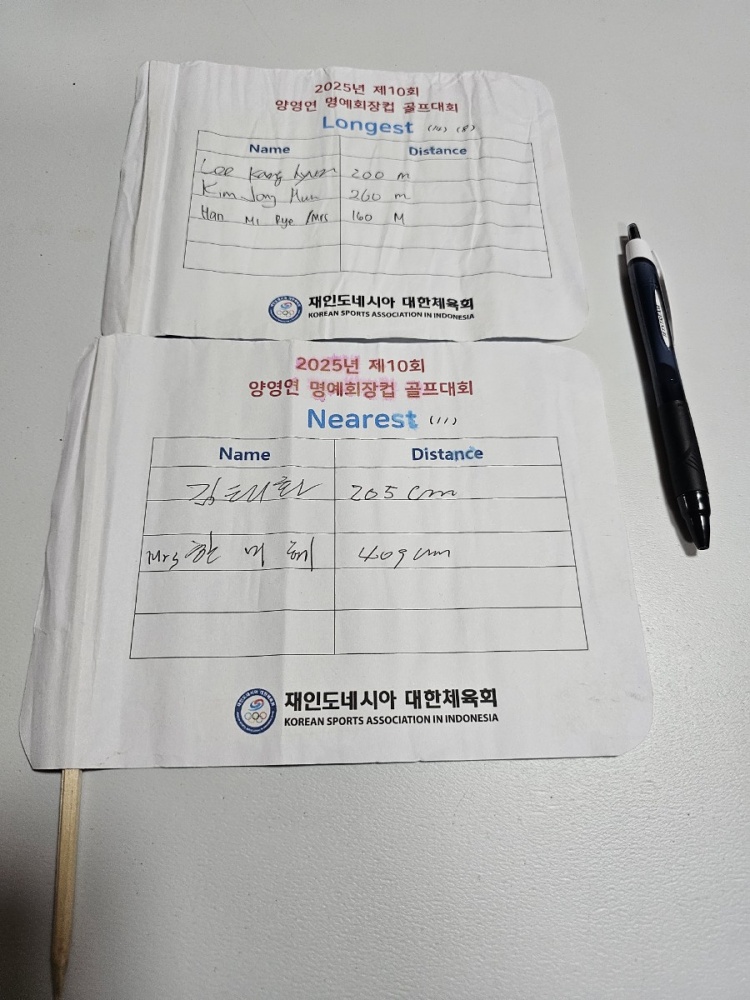 2025년 제10회
양영연 명예회장컵 골프대회
Longest (10) (8)
Name Distance
Lee Kang hyun 200 m
Kim Jong Hun 260 m
Han Mi Rye /Mrs 160 M
재인도네시아 대한체육회
KOREAN SPORTS ASSOCIATION IN INDONESIA
2025년 제10회
양영연 명예회장컵 골프대회
Nearest (11)
Name Distance
김태화 205 cm
Mrs 한 미 혜 409 cm
재인도네시아 대한체육회
KOREAN SPORTS ASSOCIATION IN INDONESIA